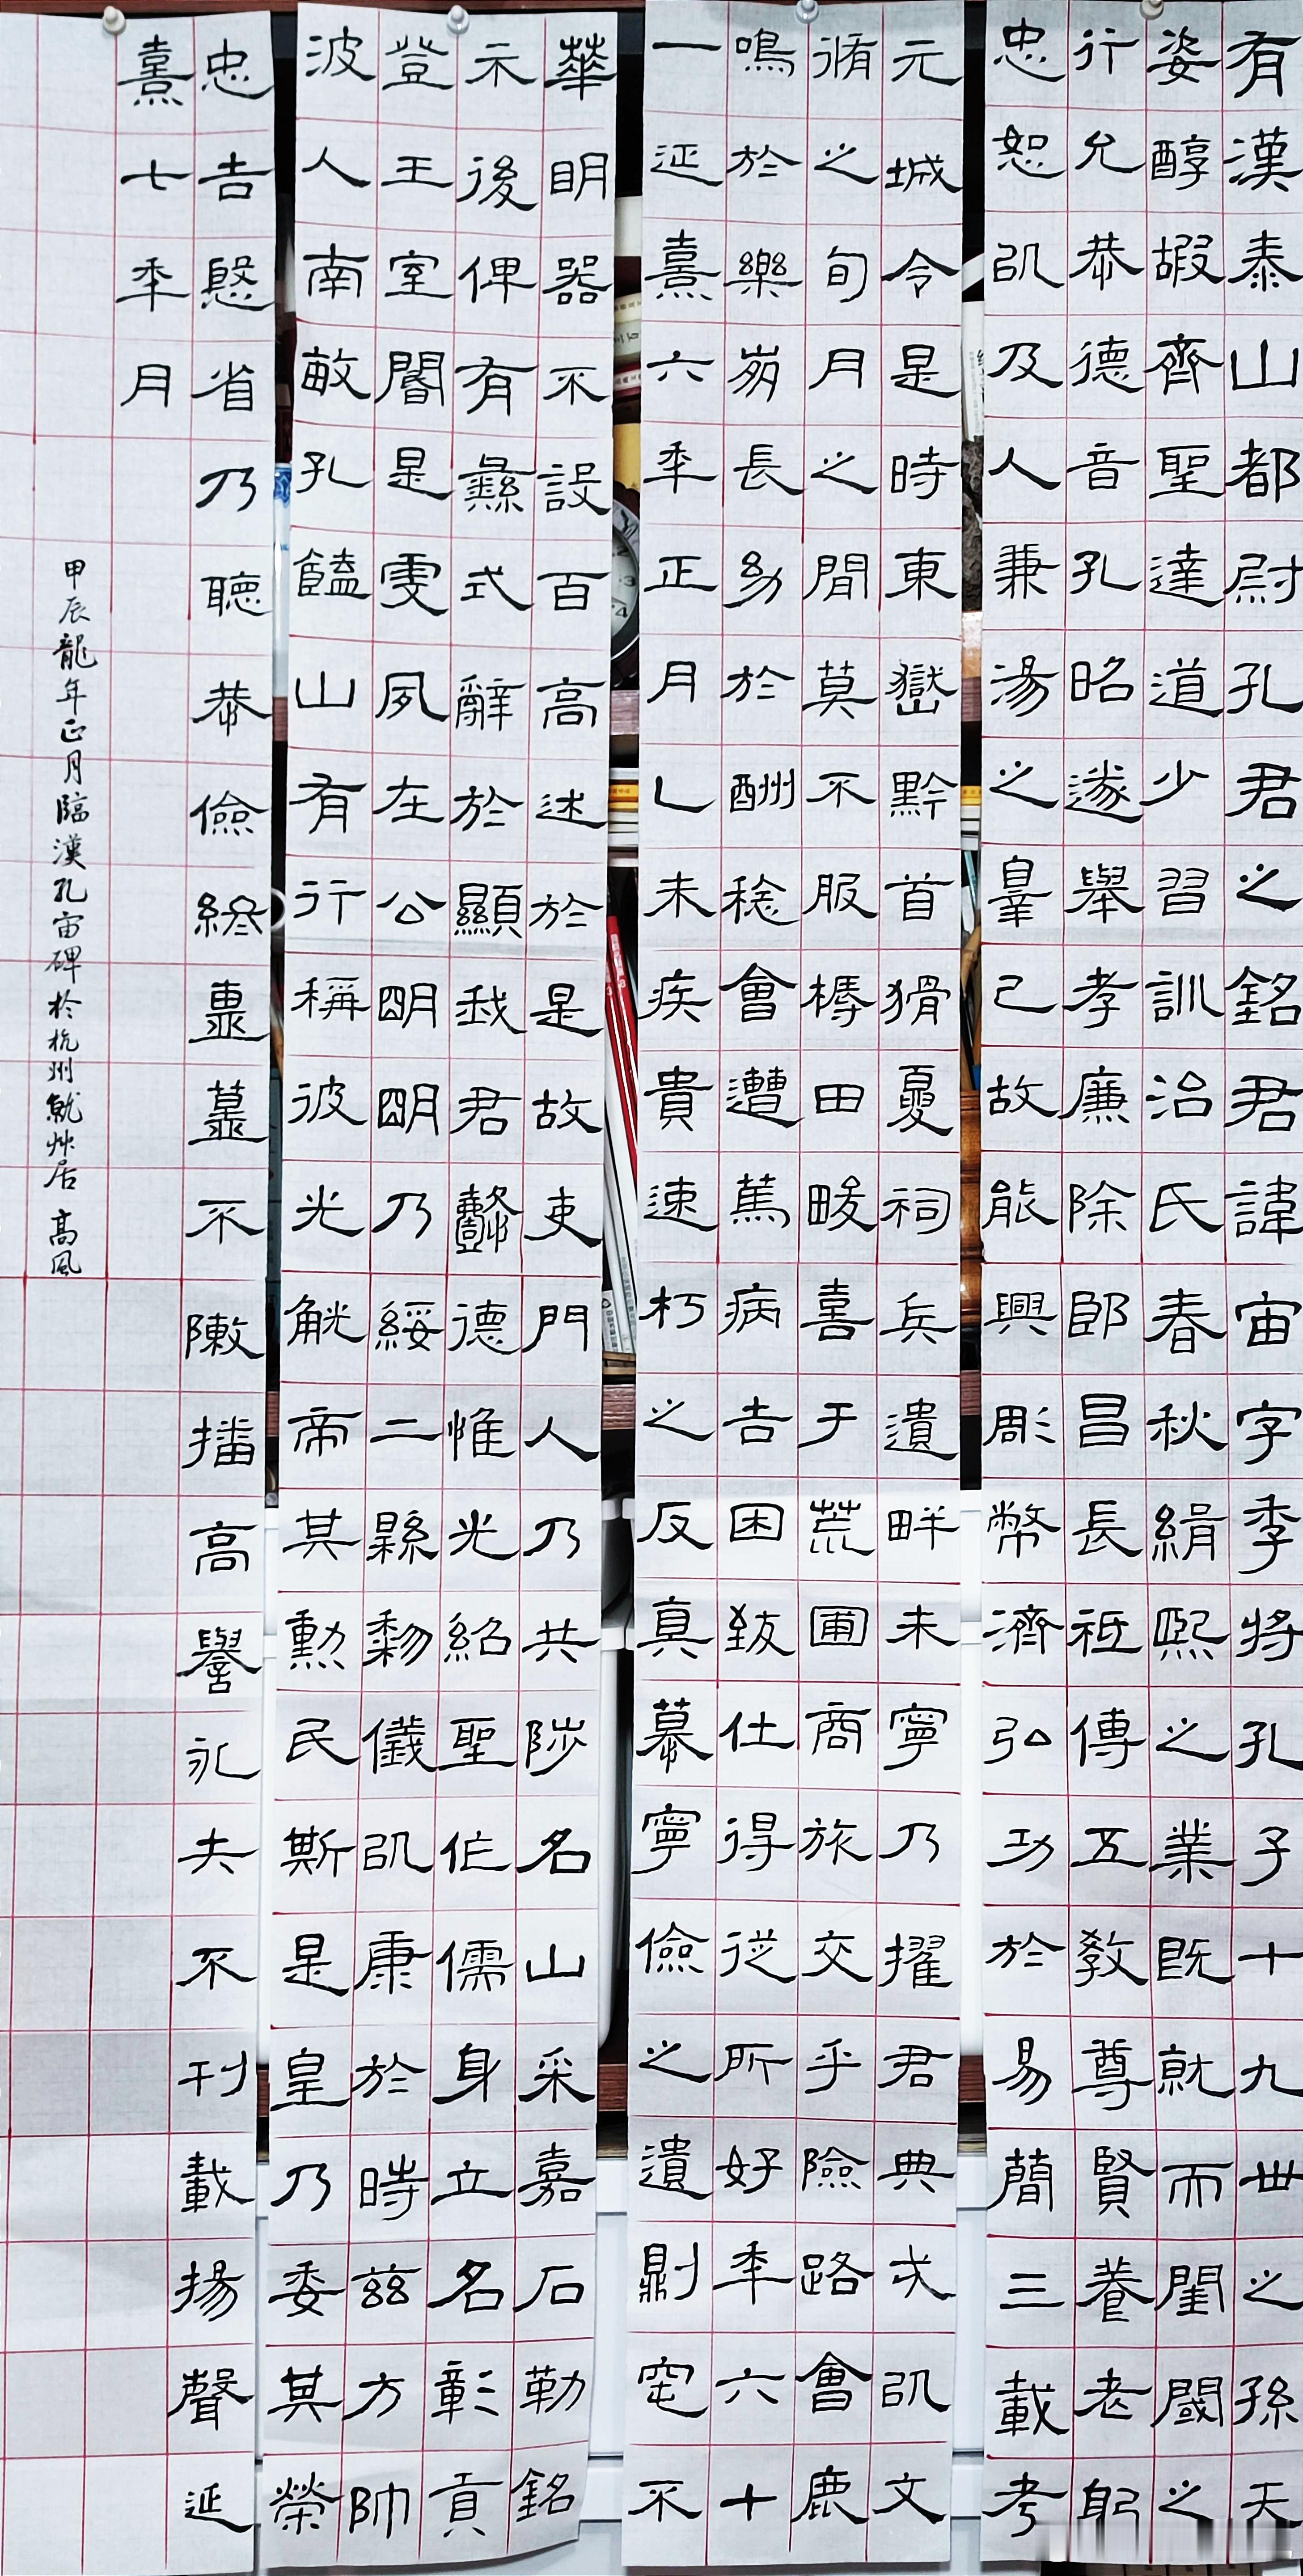 有漢泰山都尉孔君之銘君諱宙字季將孔子十九世之孫天
姿醇嘏齊聖達道少習訓治氏春秋緝熙之業既就而閨閾之
行允恭德音孔昭遂舉孝廉除郎昌長祗傳五教尊賢養老躬
忠恕以及人兼湯之辠己故能興彫幣濟弘功於易簡三載考
元城令是時東嶽黔首猾夏祠兵遺畔未寧乃擢君典戎以文
脩之旬月之間莫不服槈田畯喜于荒圃商旅交乎險路會鹿
鳴於樂崩長幼於酬稔會遭篤病告困致仕得從所好年六十
一延熹六年正月乙未疾貴速朽之反真慕寧儉之遺則窆不
華明器不設百高述於是故吏門人乃共陟名山采嘉石勒銘
示後俾有彝式辭於顯我君懿德惟光紹聖作儒身立名彰貢
登王室閽是虔夙在公明明乃綏二縣黎儀以康於時兹方帥
波人南畝孔饁山有行稱彼光觥帝其勳民斯是皇乃委其榮
忠告慇省乃聽恭儉終畺墓不敶播高譽永夫不刊載揚聲延
熹七年月
甲辰龍年正月臨漢孔宙碑於杭州艸居 高風